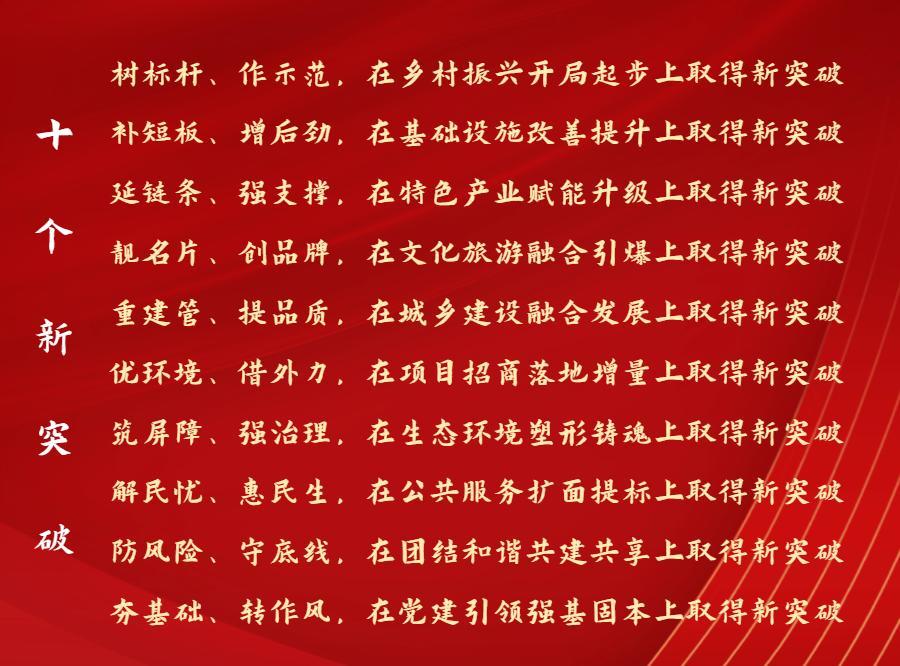 十个新突破
树标杆、作示范，在乡村振兴开局起步上取得新突破
补短板、增后劲，在基础设施改善提升上取得新突破
延链条、强支撑，在特色产业赋能升级上取得新突破
靓名片、创品牌，在文化旅游融合引爆上取得新突破
重建管、提品质，在城乡建设融合发展上取得新突破
优环境、借外力，在项目招商落地增量上取得新突破
筑屏障、强治理，在生态环境塑形铸魂上取得新突破
解民忧、惠民生，在公共服务扩面提标上取得新突破
防风险、守底线，在团结和谐共建共享上取得新突破
夯基础、转作风，在党建引领强基固本上取得新突破